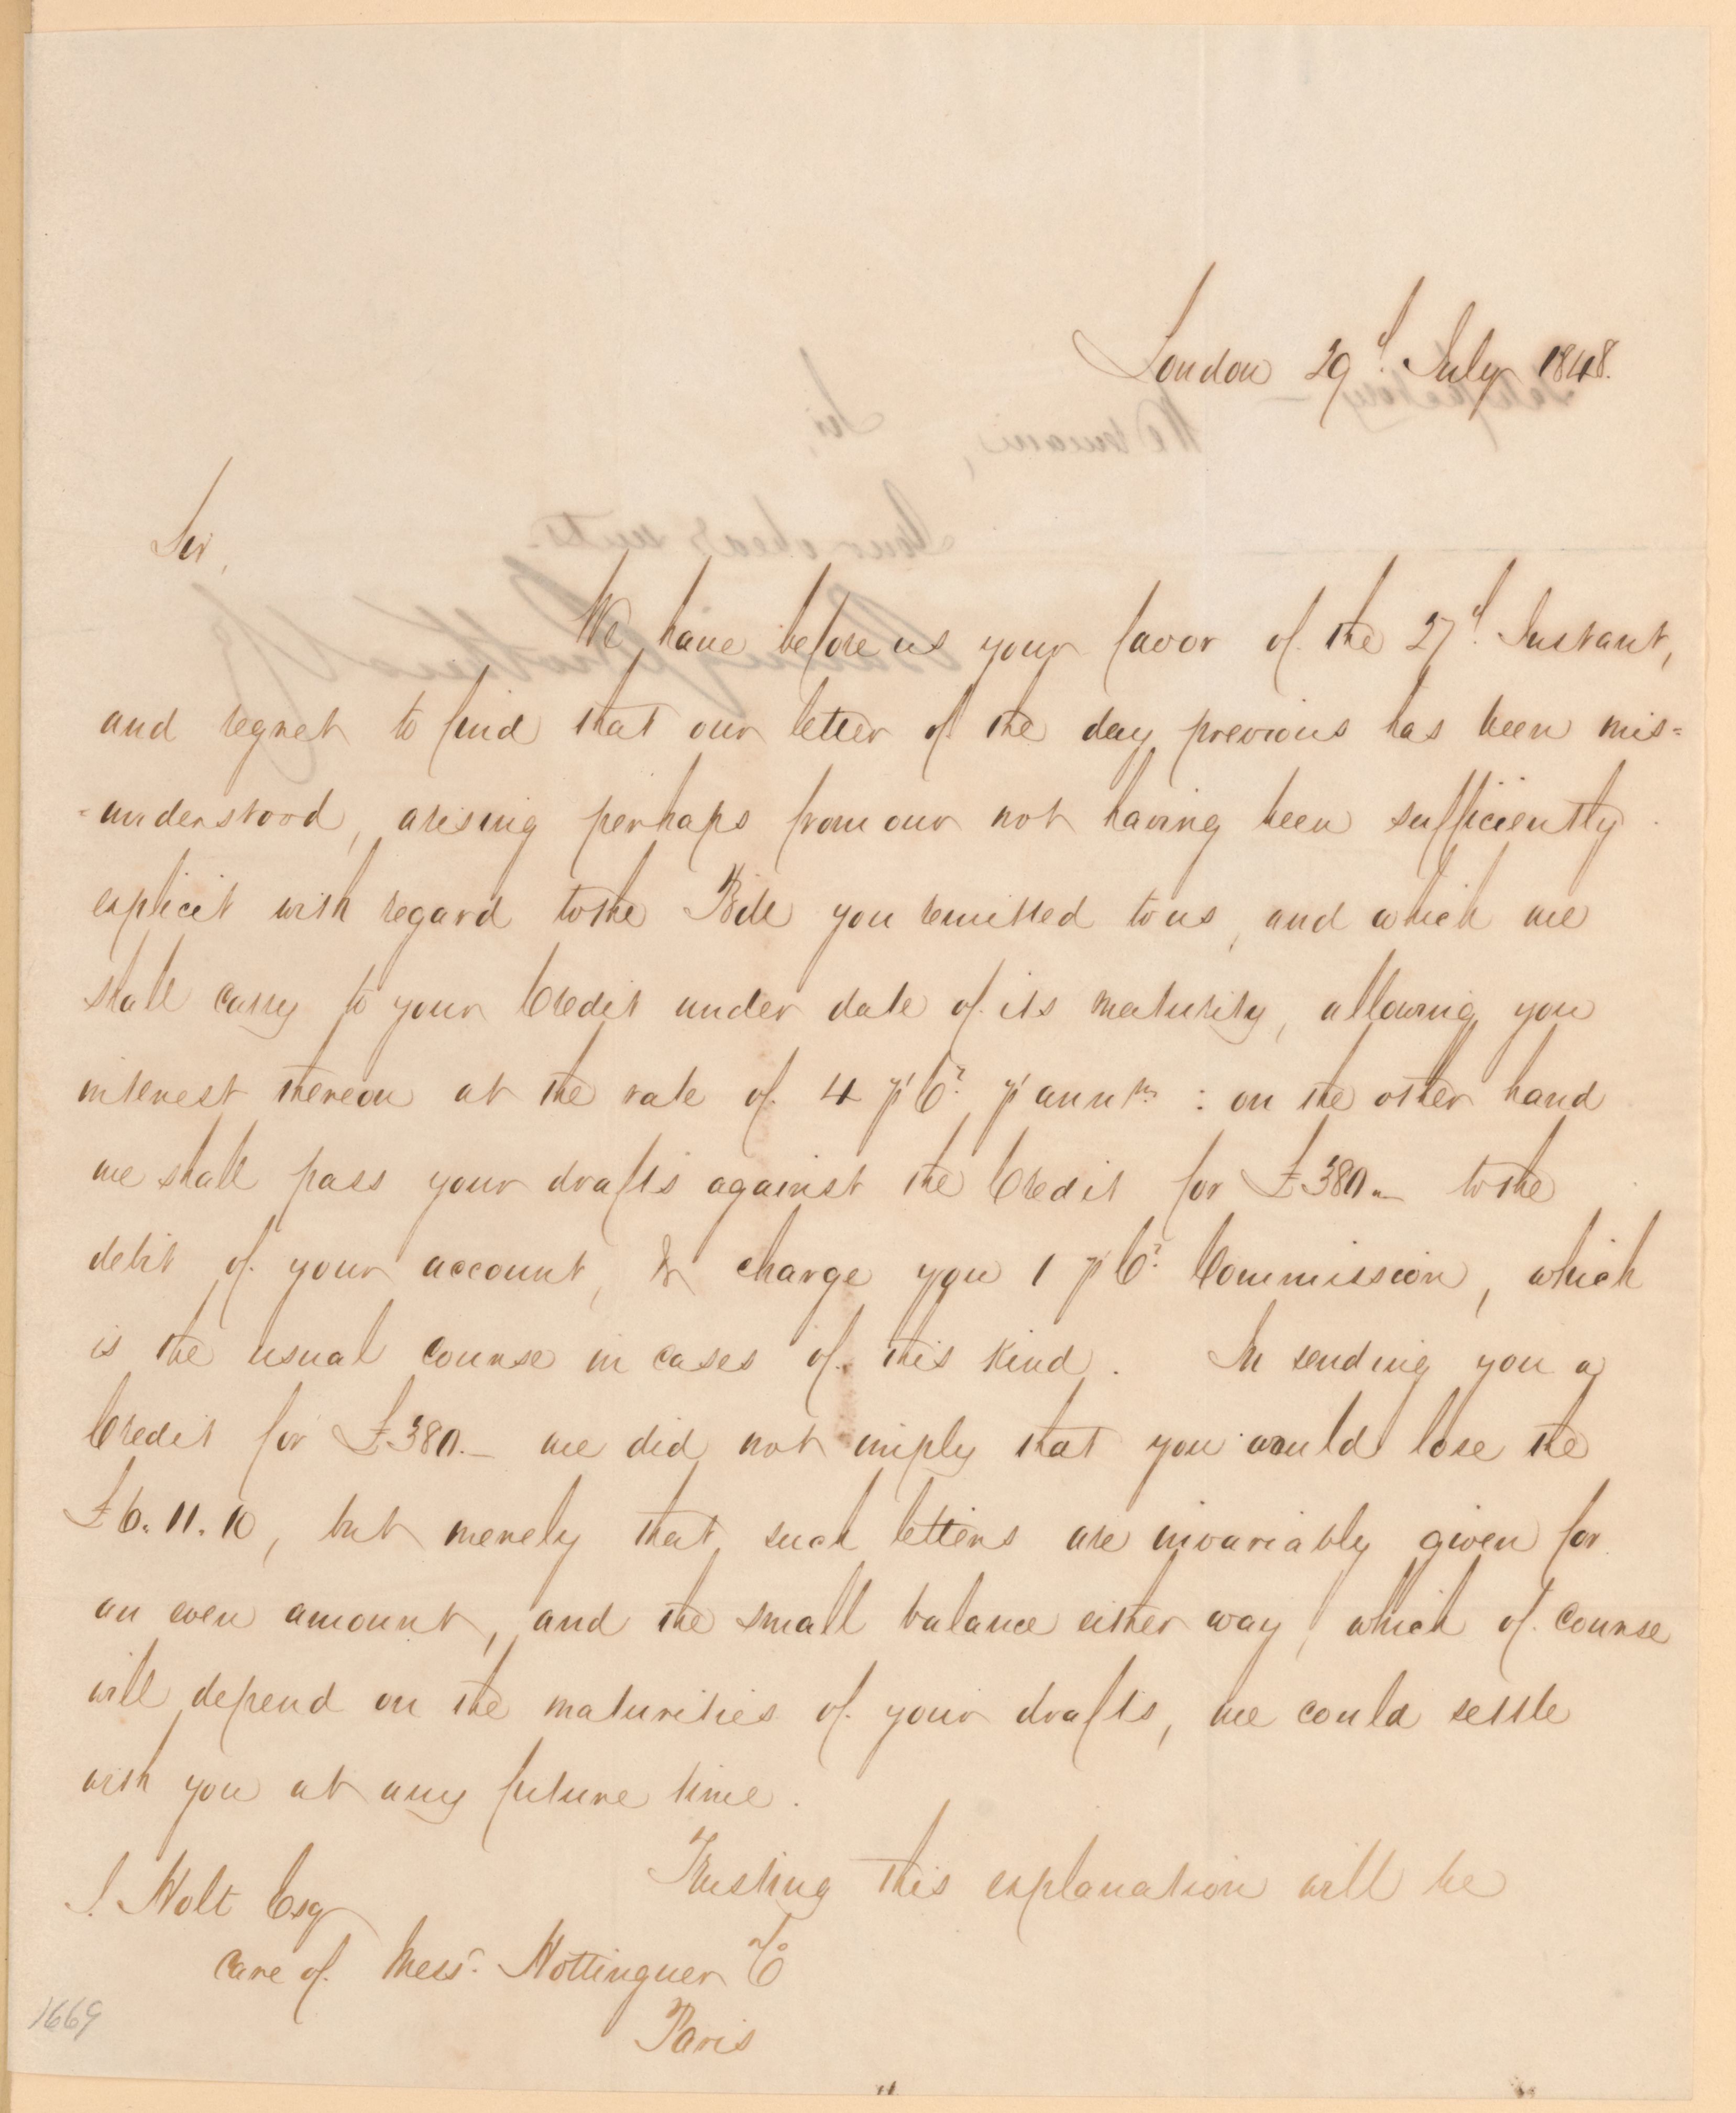 London 29th July 1848.
Sir,
We have before us your favor of the 27th Instant,
and regret to find that our letter of the day previous has been mis=
=understood, arising perhaps from our not having been sufficiently
explicit with regard to the Bill you remitted to us, and which we
shall carry to your Credit under date of its maturity, allowing you
interest thereon at the rate of 4 p Ct p annm : on the other hand
we shall pass your drafts against the Credit for £380.– to the
debit of your account, & charge you 1 p Ct Commission, which
is the usual course in cases of this kind. In sending you a
Credit for £380.– we did not imply that you would lose the
£6.11.10, but merely that such letters are invariably given for
an even amount, and the small balance either way, which of course
will depend on the maturities of your drafts, we could settle
with you at any future time.
Trusting this explanation will be
J. Holt Esq
care of Messrs Hottinguer & Co
Paris
1669